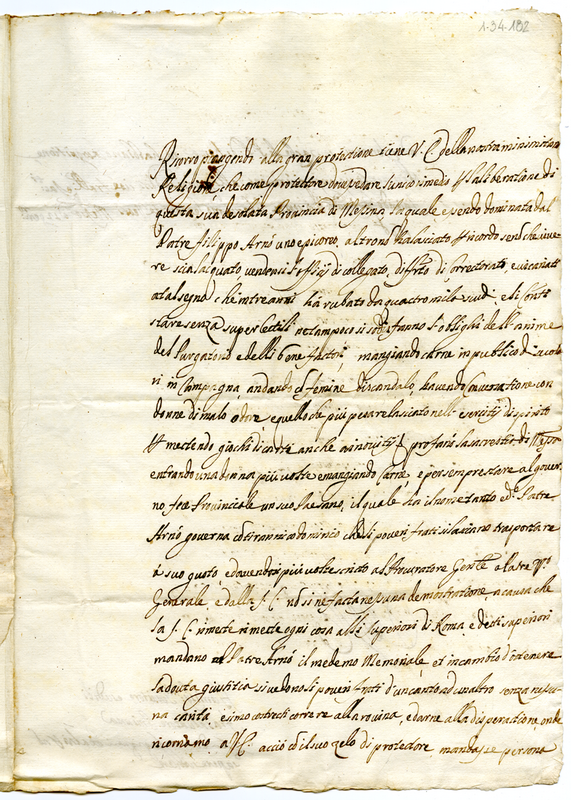 1.34.182
Ricorro piangendo alla gran protettione tiene V. C. della nostra minima
Religione, che come protettore dovrà dare l'unico rimedio alla liberatione di
questa sua desolata Provincia di Messina, la quale essendo dominata dal
Patre Filippo Arnò uno epicoreo, altro non ha lasciato ricordo se non che vive
re scialacquato, vendersi l'offitij di collegato,
talsegno che in tre anni ha rubato da quattro mila scudi, e li Conti
stare senza superlectili ne tampoco si fanno l'oblighi dell'anime
del Purgatorio e delli benefattori, mangiando carne in publico di secola
ri in Campagna, andando con femine di scandalo, havendo conversatione con
donne di malo odore, e quello che più pesa rilasciato nell'esercitij di spirito
mettendo giochi di carte anche a novitij profani la sacrestia di Messa
entrando una donna più volte e mangiando carne, e per sempre stare al gover
no, fece Provinciale un suo Paesano, il quale ha il nome tanto ed il Patre
Arnò governa con tirannico dominio che li poveri frati si lasciano trasportare
a suo gusto, ed havendosi più volte scritto al Procuratore Gen.le e la Pre
Generale, e dalla S. C. non si ne fatta nessuna demostratione, a causa che
la S. C. rimette rimette ogni cosa alli superiori di Roma e detti superiori
mandano al Patre Arnò il medemo Memoriale, et in cambio d'ottenere
la dovuta giustitia si vedono li poveri frati d'un canto ad un altro senza nessu
na carità, e simo costretti correre alla rovina, e darne alla disperatione, onde
ricorriamo a V.C. acciò con il suo zelo di protettore mandasse persona